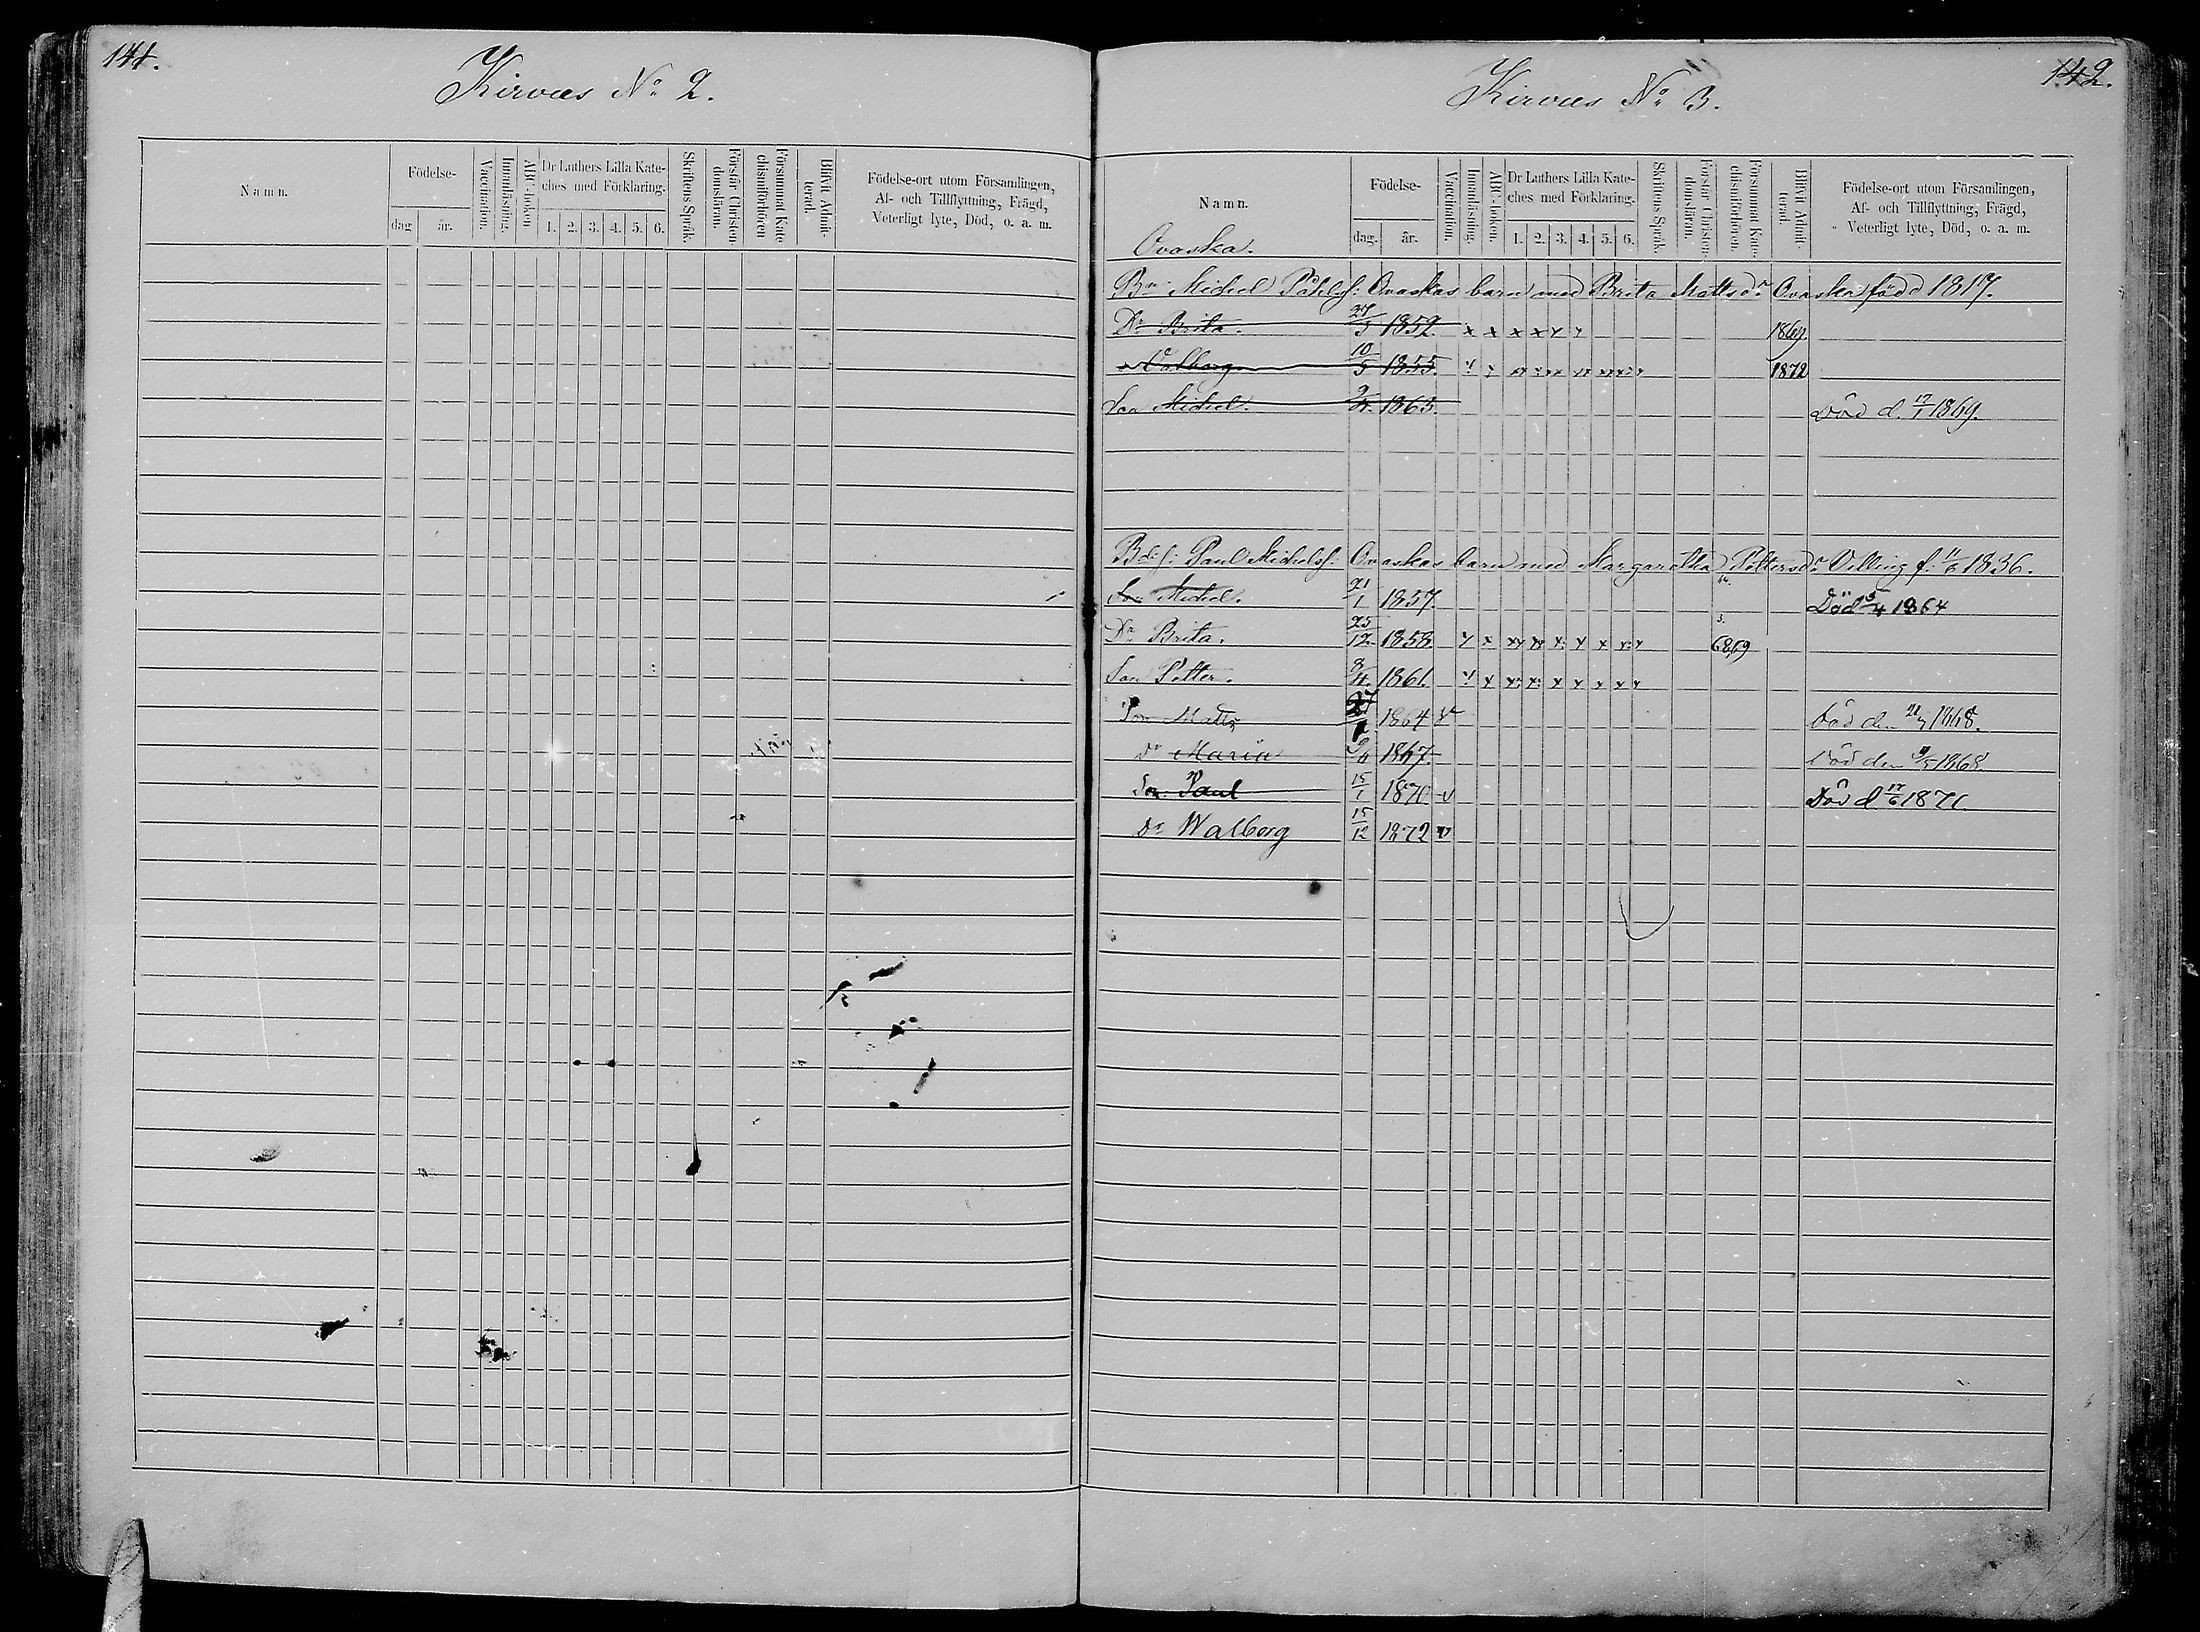 141.
Kirvus No 2.
Namn.
Födelse-
dag år.
Vaccination.
Innanläsning.
ABC-boken
Dr Luthers Lilla Kate-
ches med Förklaring.
1. 2. 3. 4. 5. 6.
Skriftens Språk.
Förstår Christen-
domsläran.
Försummat Kate-
chismiförhören
Blifvit Admit-
terad.
Födelse-ort utom Församlingen,
Af- och Tillflyttning, Frägd,
Veterligt lyte, Död, o. a. m.
142.
Kirvus No 3.
Namn.
Födelse-
dag. år.
Vaccination.
Innanläsning.
ABC-boken.
Dr Luthers Lilla Kate-
ches med Förklaring.
1. 2. 3. 4. 5. 6.
Skriftens Språk.
Förstår Christen-
domsläran.
Försummat Kate-
chismiförhören.
Blifvit Admit-
terad.
Födelse-ort utom Församlingen,
Af- och Tillflyttning, Frägd,
Veterligt lyte, Död, o. a. m.
Ovaska.
Bn Michel Påhlsf: Ovaskas barn med Brita Mattsdr Ovaska född 1817.
Dr Brita. 27/3 1852. x x x x x x 1869.
Valborg 10/5 1855. 1872
Son Michel. 2/4. 1863. Död d. 17/1 1869.
Bdsf: Paul Michelsf: Ovaskas barn med Margaretha Pettersdr Villing f. 11/6 1836.
Son Michel. 21/1 1857. Död 5/4 1864
Dr Brita. 25/12 1858. 3. 68,69
Son Petter. 8/4. 1861.
Son Matts 27/1 1864 v Död den 21/7 1868.
Dr Maria 9/6 1867. Död den 9/5 1868
Son Paul 15/1 1870 v Död d 17/6 1871
Dr Walborg 15/12 1872 v